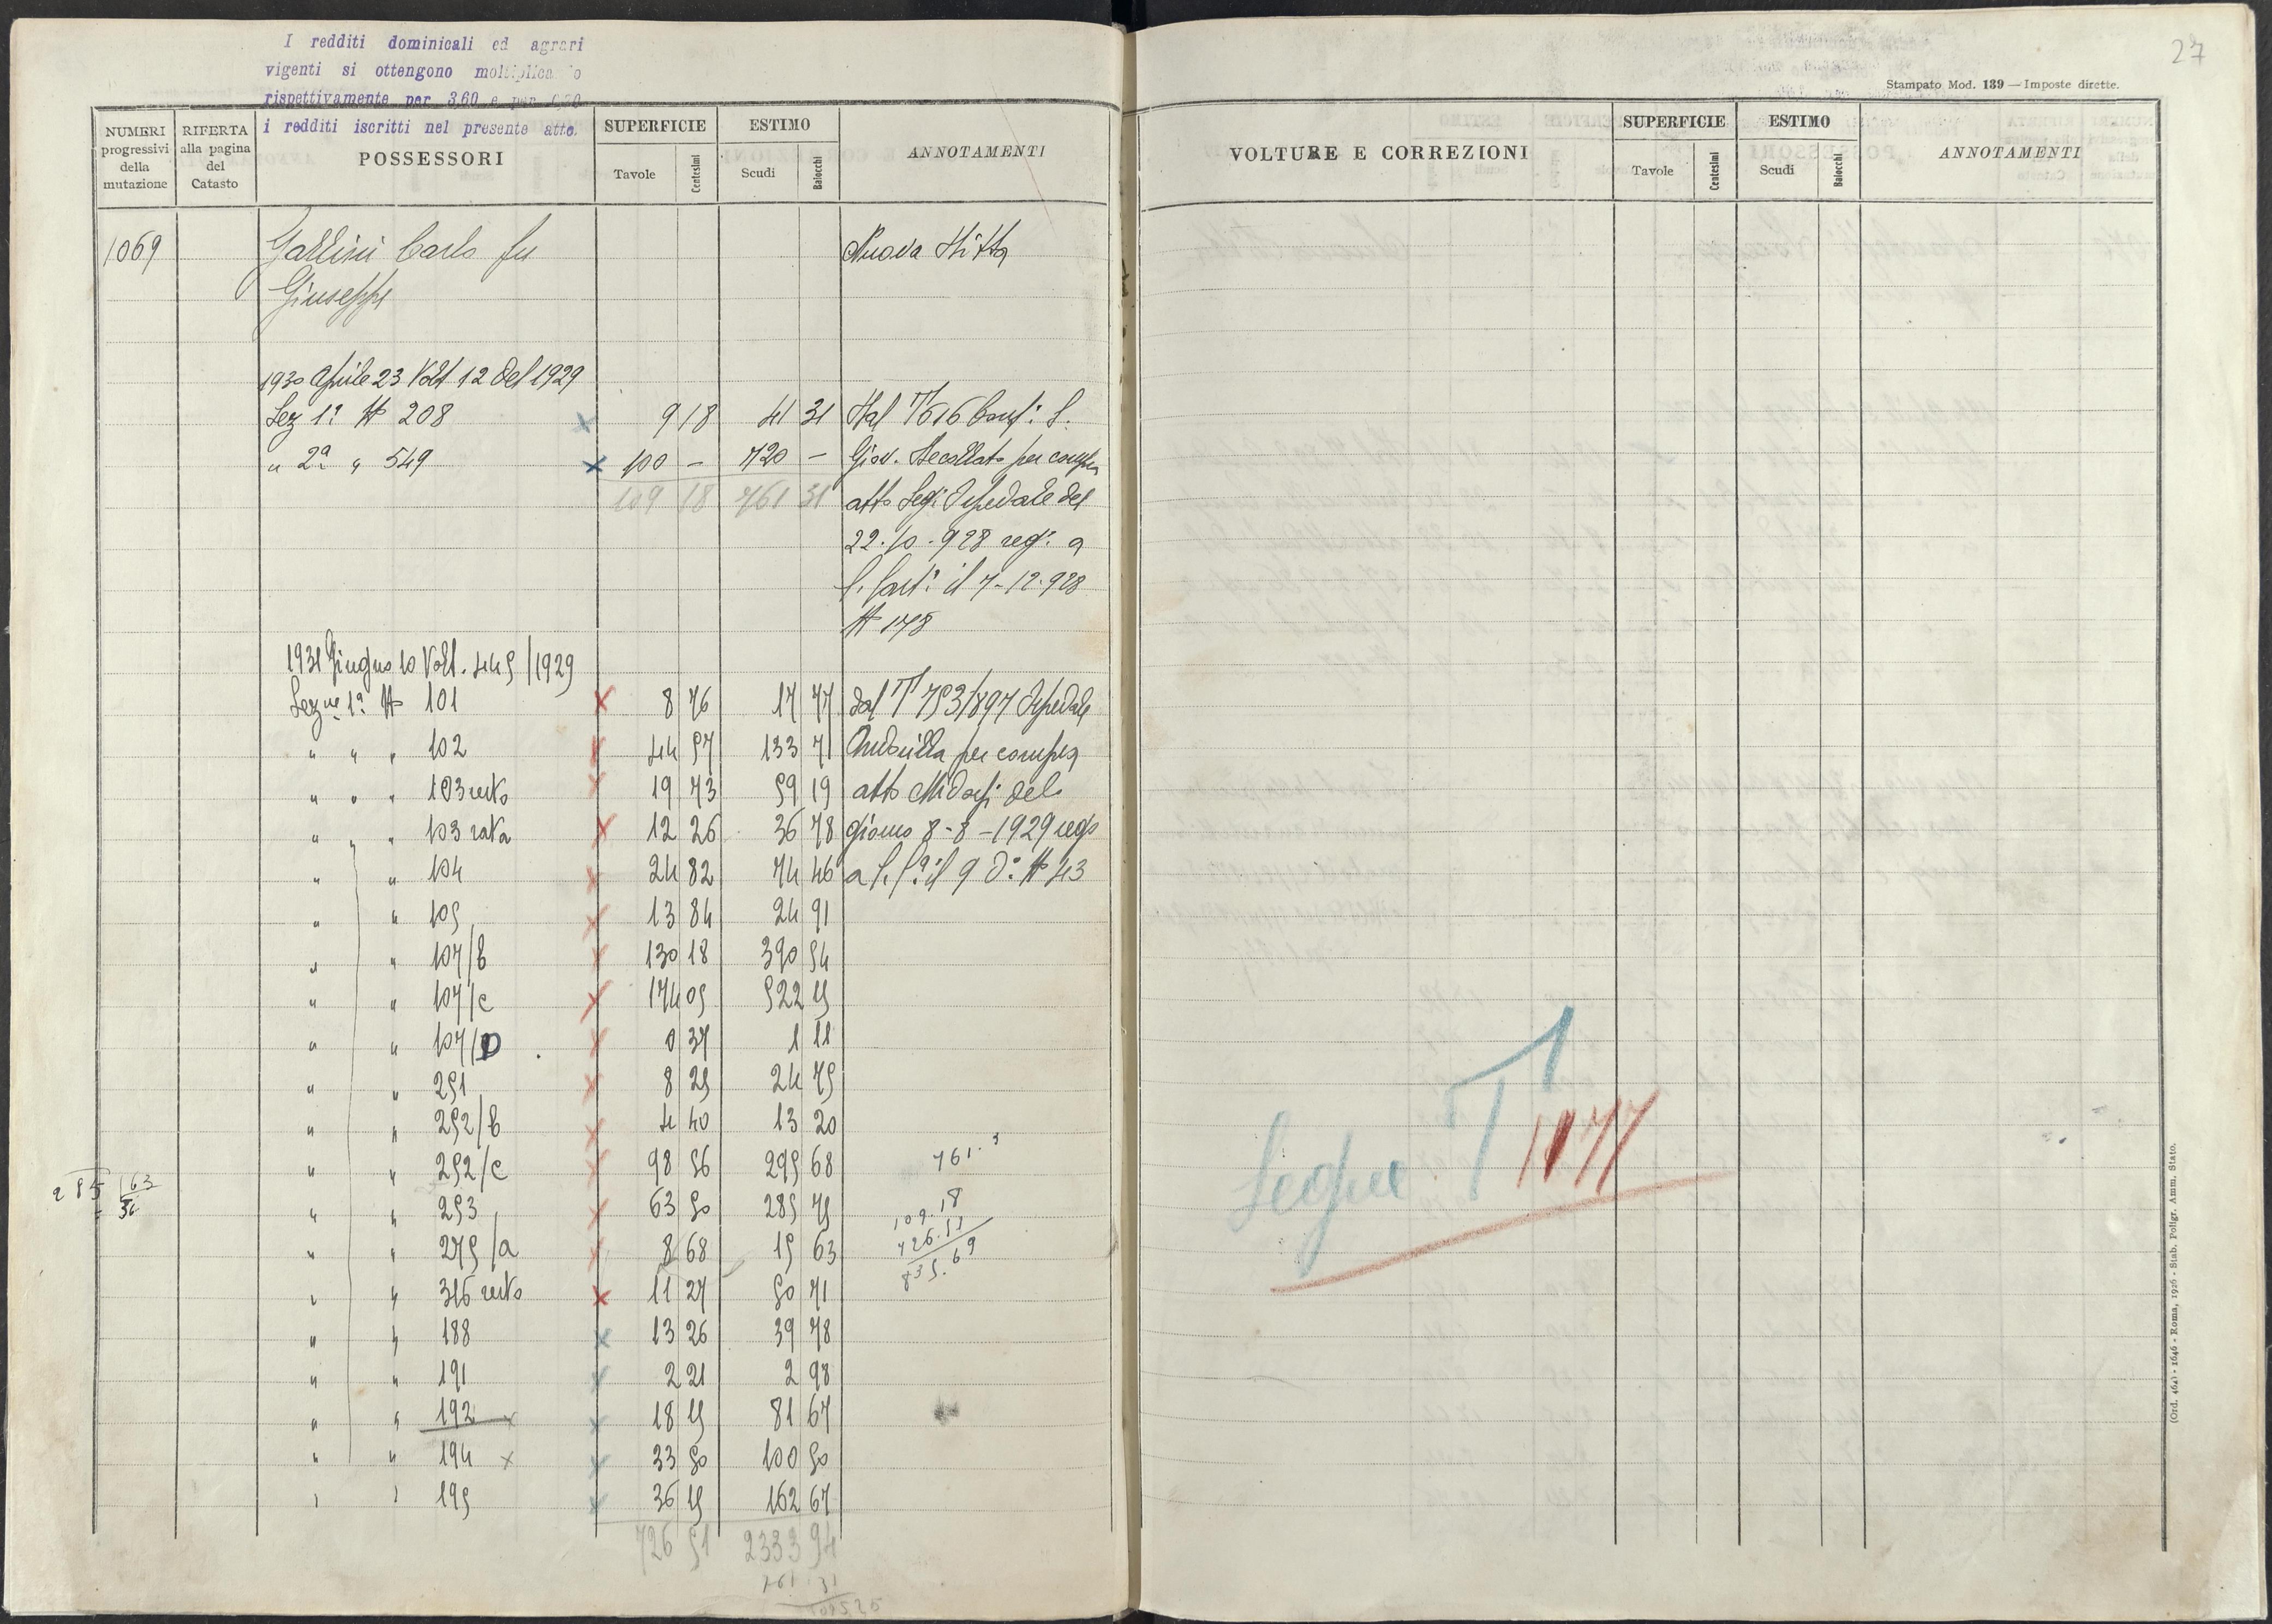 I redditi dominicali ed agrari
vigenti si ottengono
rispettivamente per 3,60 e per
i redditi iscritti nel presente atto.
NUMERI progressivi della mutazione
RIFERTA alla pagina del Catasto
POSSESSORI
SUPERFICIE
Tavole Centesimi
ESTIMO
Scudi Baiocchi
ANNOTAMENTI
1069 Gallini Carlo fu Nuova Ditta
Giuseppe
1930 Aprile 23 Volt 12 del 1929
Sez 1ª N 208 x 9 18 41 31 Dal T 616
" 2ª " 549 x 100 - 720 - Giov. Decollato per compra
109 18 761 31 atto Seg. Ospedale del
22.10.928 reg: a
il 7-12-928
N 178
1931 Giugno 10 Volt. 445/1929
Sezne 1ª N 101 x 8 76 17 77 dal T 753/897 Ospedale
" " " 102 x 44 57 133 71 per compra
" " " 103 resto x 19 73 59 19 atto del
" " " 103 rata x 12 26 36 78 giorno 8-8-1929 rego
" " 104 x 24 82 74 46 il 9 d° N 43
" " 105 x 13 84 24 91
" " 107/b x 130 18 390 54
" " 107/c x 174 05 522 15
" " 107/D x 0 37 1 11
" " 251 x 8 25 24 75
" " 252/b x 4 40 13 20
" " 252/c x 98 56 295 68 761.3
" " 253 x 63 50 285 75 109.18
" " 275/a x 8 68 15 63 726.51
835.69
" " 316 resto x 11 27 50 71
" " 188 x 13 26 39 78
" " 191 x 2 21 2 98
" " 192 x x 18 15 81 67
" " 194 x x 33 50 100 50
" " 195 x 36 15 162 67
726 51 2333 94
761 31
27
Stampato Mod. 139 — Imposte dirette.
VOLTURE E CORREZIONI
SUPERFICIE
Tavole Centesimi
ESTIMO
Scudi Baiocchi
ANNOTAMENTI
Segue T 1077
(Ord. 464) - 1646 - Roma, 1926 - Stab. Poligr. Amm. Stato.